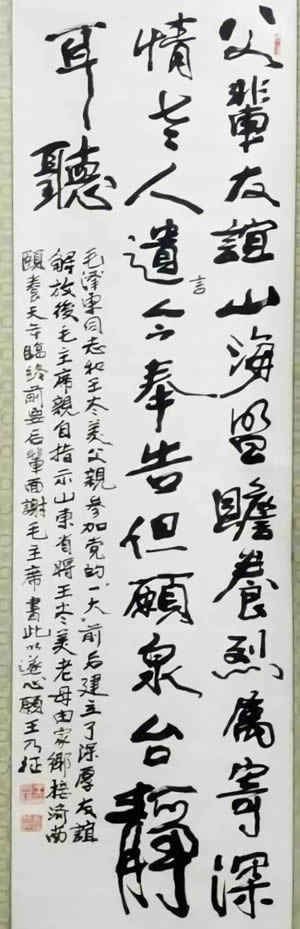 父輩友誼山海盟贍養烈属寄深
情老人遺言今奉告但願泉台靜
耳聽
毛泽東同志和王尽美父親参加党的一大前后建立了深厚友誼
解放後毛主席親自指示山東省將王尽美老母由家鄉接濟南
頤養天年臨終前囑后輩面謝毛主席書此以遂心願王乃征